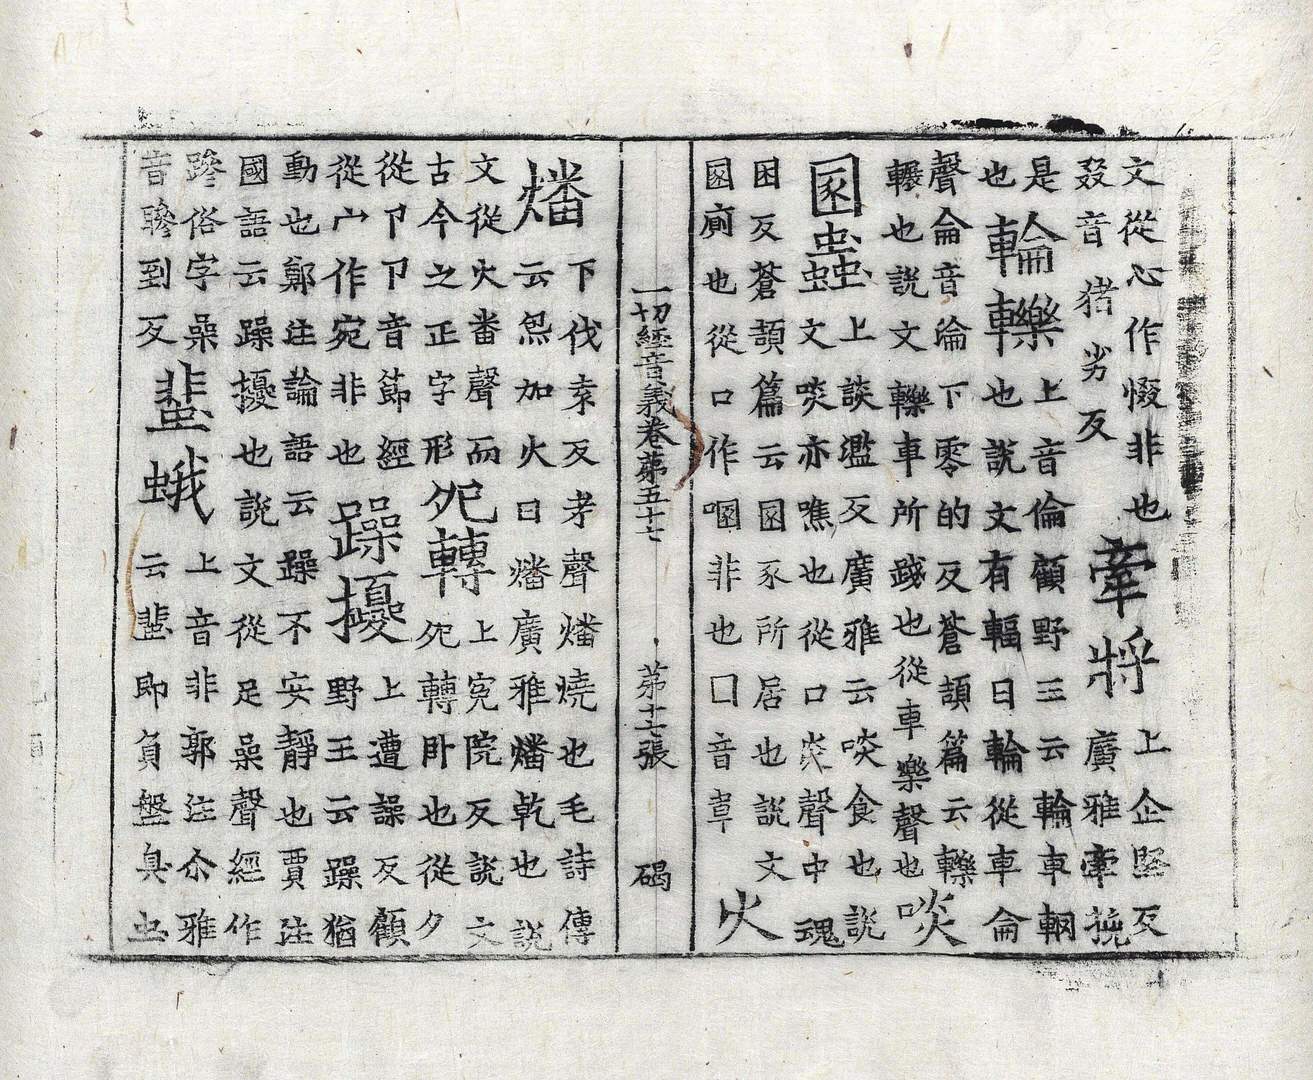 文從心作惙非也
叕音猪劣反
牽將
上企堅反
廣雅牽挽
是
也
輪轢
上音倫顧野王云輪車輞
也說文有輻曰輪從車侖
聲侖音淪下零的反蒼頡篇云轢
輾也說文轢車所踐也從車樂聲也
啖
圂蟲
上談濫反廣雅云啖食也說
文啖亦噍也從口炎聲中魂
困反蒼頡篇云圂豕所居也說文
圂廁也從口作非也囗音韋
火
一切經音義卷苐五十七 苐十七張 碣
燔
下伐袁反考聲燔燒也毛詩傳
云炰加火曰燔廣雅燔乾也說
文從火番聲而
古今之正字形
夗轉
上宛院反說文
夗轉卧也從夕
從卩卩音節經
從宀作宛非也
躁擾
上遭譟反顧
野王云躁猶
動也鄭注論語云躁不安靜也賈注
國語云躁擾也說文從足喿聲經作
俗字喿
音到反
蜚蛾
上音非郭注尒雅
云蜚即負盤臭虫